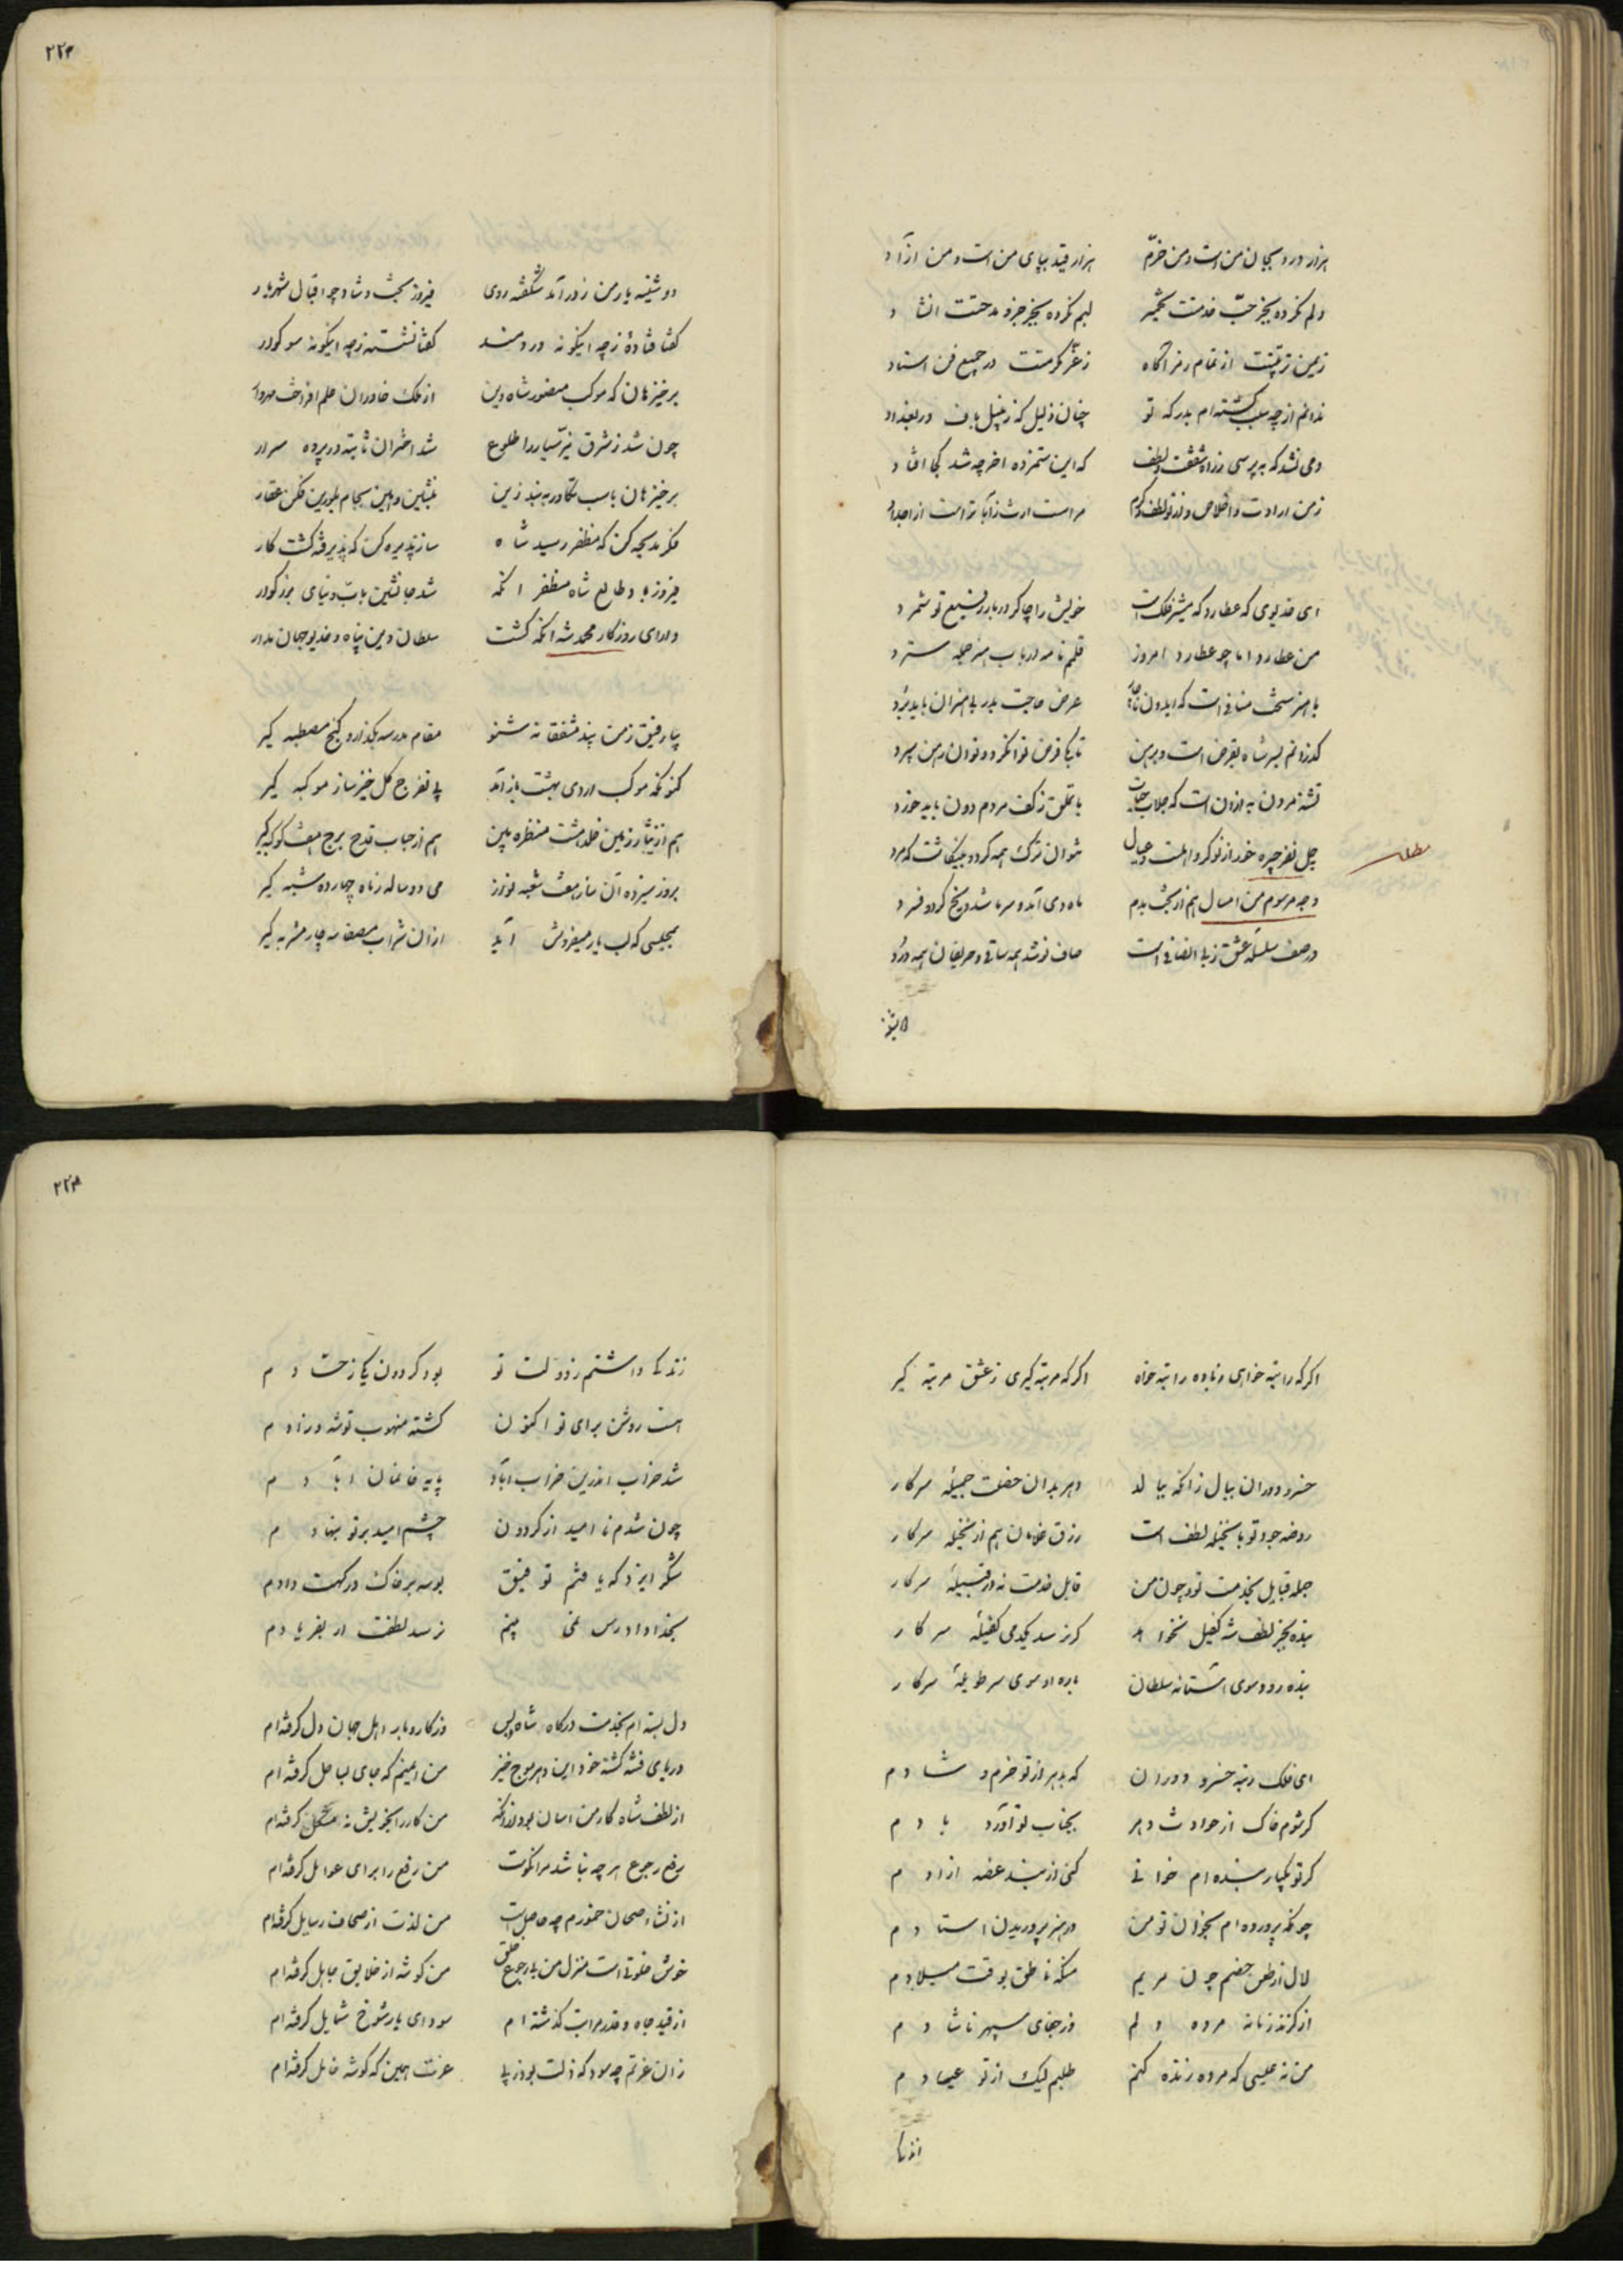 هزار درد بجان من است و من خرّم هزار قید بپای من است و من آزاد
دلم نکرده بجز حبّ خدمتت تخمیر لبم نکرده بجز جزو مدحتت انشاد
زیمن تربیتت از تمام رمز آگاه زعزّ مکرمتت در جمیع فن استاد
ندانم از چه سبب گشته‌ام بدرگه تو چنان ذلیل که زنبیل باف در بغداد
دمی نشد که بپرسی ز راه شفقت و لطف که این ستمزده آخر چه شد کجا افتاد
زمن ارادت و اخلاص و از تو لطف و کرم مراست ارث ز آبا تراست از اجداد
ای خدیوی که عطارد که مشیر فلک است خویش را چاکر دربار رفیع تو شمرد
من عطارد اما چو عطارد امروز قلمم نامه ارباب هنر جمله سترد
با هنر سخت منافی است که ایدون ناچار عرض حاجت بدر بی هنران باید برد
گذرانم بسر شاه بقرض است و برهن تا بکی قرض توان کرد و توان رهن سپرد
تشنه مردن به از آن است که جلاب حیات با تملق ز کف مردم دون باید خورد
چل نفر جیره خور از نوکر و اهلست و عیال نتوان ترک همه کرد و نینگاشت که مرد
مطلب
وجه مرسوم من امسال هم از بخت بدم ماه دی آمد و سرما شد و یخ کرد و فسرد
در صف سلسله عشق ز بی انصافی است صاف نوشد همه ساقی و حریفان همه درد
دوشینه
۲۲۳
دوشینه یار من ز در آمد شگفته روی فیروز بخت و شاد چو اقبال شهریار
گفتا فتاده‌ٔ ز چه اینگونه دردمند گفتا نشسته ز چه اینگونه سوگوار
برخیز هان که موکب منصور شاه دین از ملک خاوران علم افراخت مهروار
چون شد ز شرق نیّر سیار را طلوع شد اختران ثابته در پرده سرار
برخیز هان باسب تکاور به بند زین بنشین و هین بجام بلورین فکن عقار
فکر مدیحه کن که مظفر رسید شاه ساز پذیره کن که پذیرفته گشت کار
فیروز باد طالع شاه مظفر آنکه شد جانشین باب و نیای بزرگوار
دارای روزگار محمد شه آنکه گشت سلطان دین پناه و خدیو جهان مدار
بیا رفیق ز من پند مشفقانه شنو مقام مدرسه بگذار و کنج مصطبه گیر
کنونکه موکب اردی بهشت باز آمد پی تفرج گل خیز ساز موکبه گیر
هم از نثار زمین خلد هشت منظره بین هم از حباب قدح برج هفت کوکبه گیر
بروز سیزده آن ساز هفت شعبه نواز می دو ساله ز ماه چهارده شبه گیر
بمجلسی که لب یار میفروش آید از آن شراب مصفا سه چار مشربه گیر
اگر که راتبه خواهی ز باده راتبه خواه اگر که مرتبه گیری ز عشق مرتبه گیر
خسرو دوران ببال زانکه ببالد دهر بدان خصلت جمیله سرکار
روضه جود تو با نخیله لطف است رزق غلامان هم از نخیله سرکار
جمله قبایل بخدمت تو و چون من قابل خدمت نه در قبیلهٔ سرکار
بنده بجز لطف شه کفیل نخواهد گر نرسد یکدمی کفیلهٔ سرکار
بنده رود سوی آستانه سلطان باره او سوی سر طویلهٔ سرکار
ای فلک رتبه خسرو دوران که بدهر از تو خرم و شادم
گر شوم خاک از حوادث دهر بجناب تو آورد بادم
گر تو یکبار بنده‌ام خوانی کنی از بند غصه آزادم
چونکه پرورده‌ام بخوان تو من در هنر پروریدن استادم
لال از طعن خصم چون مریم منکه ناطق بوقت میلادم
از گزند زمانه مرده دلم وز جفای سپهر ناشادم
من نه عیسی که مرده زنده کنم طلبم لیک از تو عیسا دم
زندگی
۲۲۴
زندگی داشتم ز دولت تو بود گردون یکی ز حسادم
هست روشن برای تو اکنون گشته منهوب توشه و زادم
شد خراب اندرین خراب آباد پایه خانمان آبادم
چون شدم نا امید از گردون چشم امید بر تو بنهادم
شکر ایزد که یافتم توفیق بوسه بر خاک درگهت دادم
بخدا دادرس نمی بینم نرسد لطفت ار بفریادم
دل بسته‌ام بخدمت درگاه شاه و بس وز کار و بار اهل جهان دل گرفته‌ام
دریای فتنه گشته خود این دهر موج خیز من ایمنم که جای بساحل گرفته‌ام
از لطف شاه کار من آسان بود از آنکه من کار را بخویش نه مشکل گرفته‌ام
رفع رجوع هر چه نباشد مرا نکوست من رفع را برای عوامل گرفته‌ام
از نشاء صحان خمورم چه حاصل است من لذت از صحاف رسایل گرفته‌ام
خوش خلوتی است منزل من با رجوع خلق من گوشه از خلایق جاهل گرفته‌ام
از قید جاه و قدر مراتب گذشته‌ام سودای یار شوخ شمایل گرفته‌ام
زان عزتم چه سود که ذلت بود ز پی عزت همین که گوشه خامل گرفته‌ام